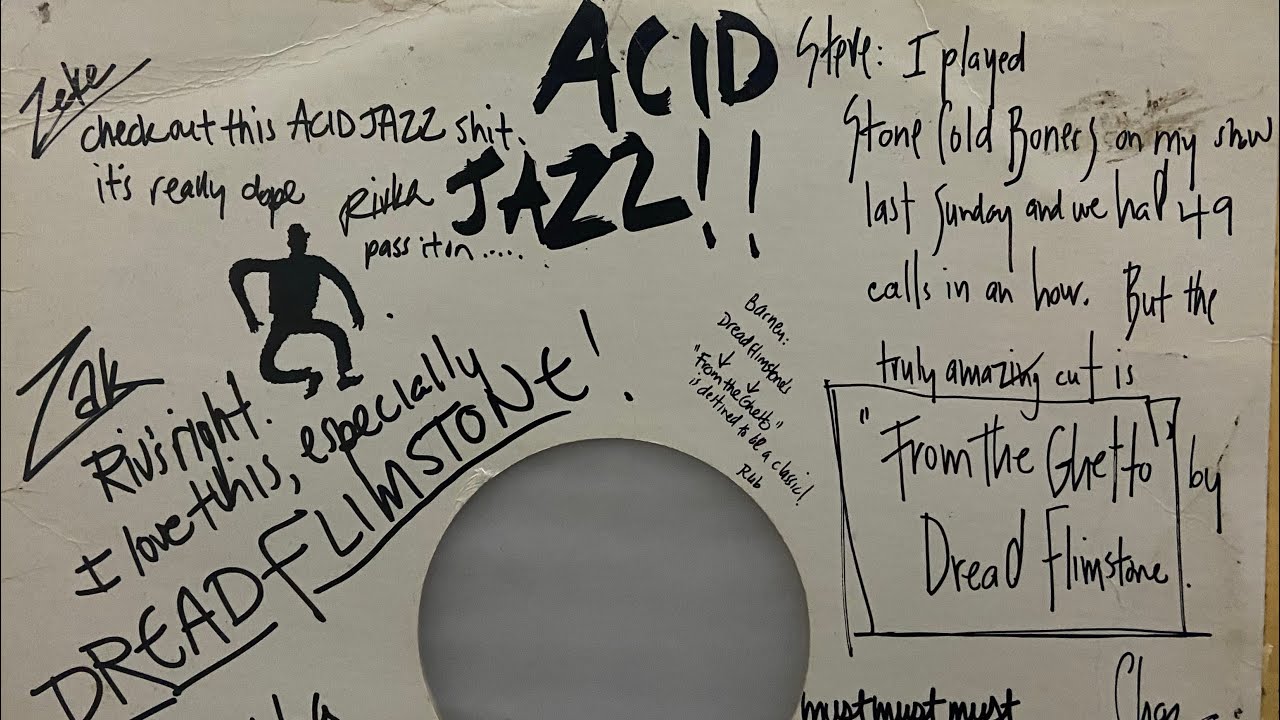 ACID
JAZZ!!
Zeke
check out this ACID JAZZ shit.
it's really dope
Rivka
pass it on.....
Zak
Riv's right.
I love this, especially
DREAD FLIMSTONE!
Barney:
Dread Flimstone's
"From the Ghetto"
is destined to be a classic!
Rob
Steve: I played
Stone Cold Boners on my show
last Sunday and we had 49
calls in an hour. But the
truly amazing cut is
"From the Ghetto" by
Dread Flimstone.
mustmustmust